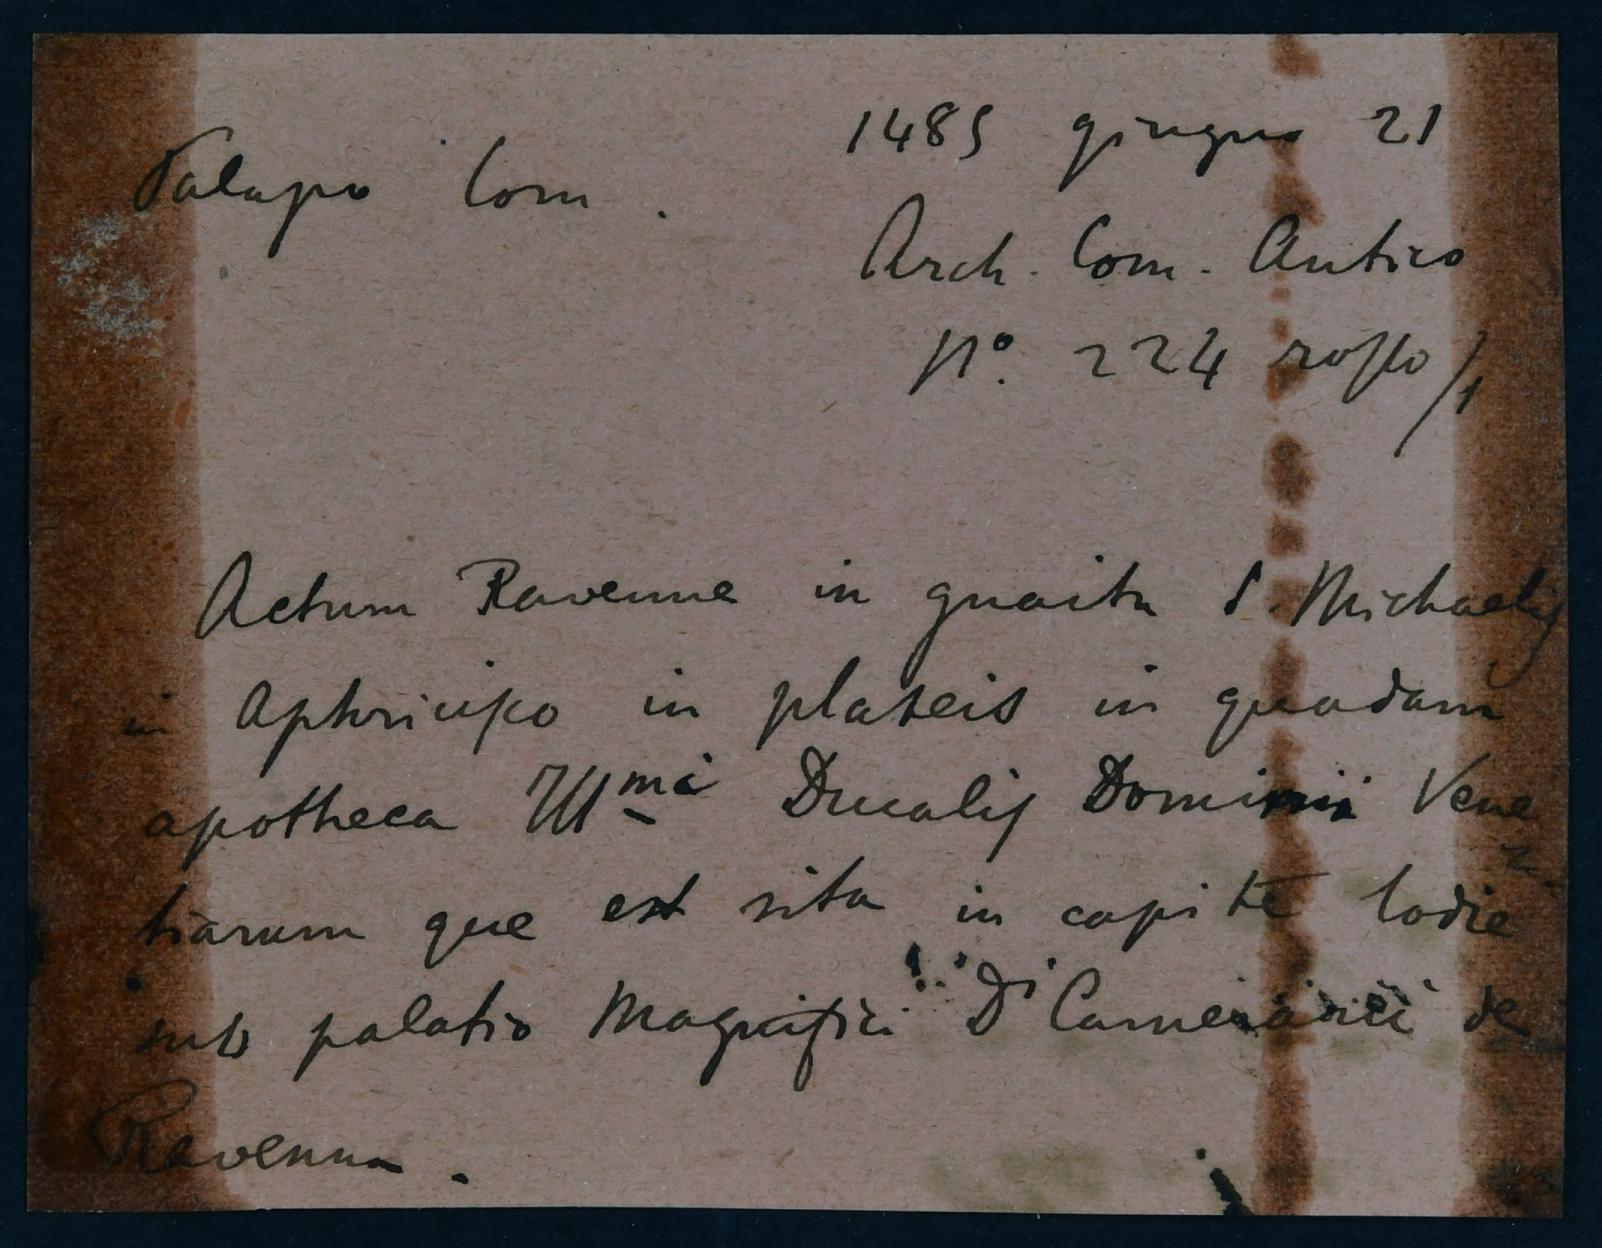 1485 giugno 21
Palazzo Com.
Arch. Com. Antico
N°. 224 rosso/1
Actum Ravenne in guaita S. Michaelis
in Aphricisco in plateis in quadam
apotheca Ill^mi Ducalis Dominii Vene
tiarum que est sita in capite lodie
sub palatio Magnifici D^i Camerarii de
Ravenna.